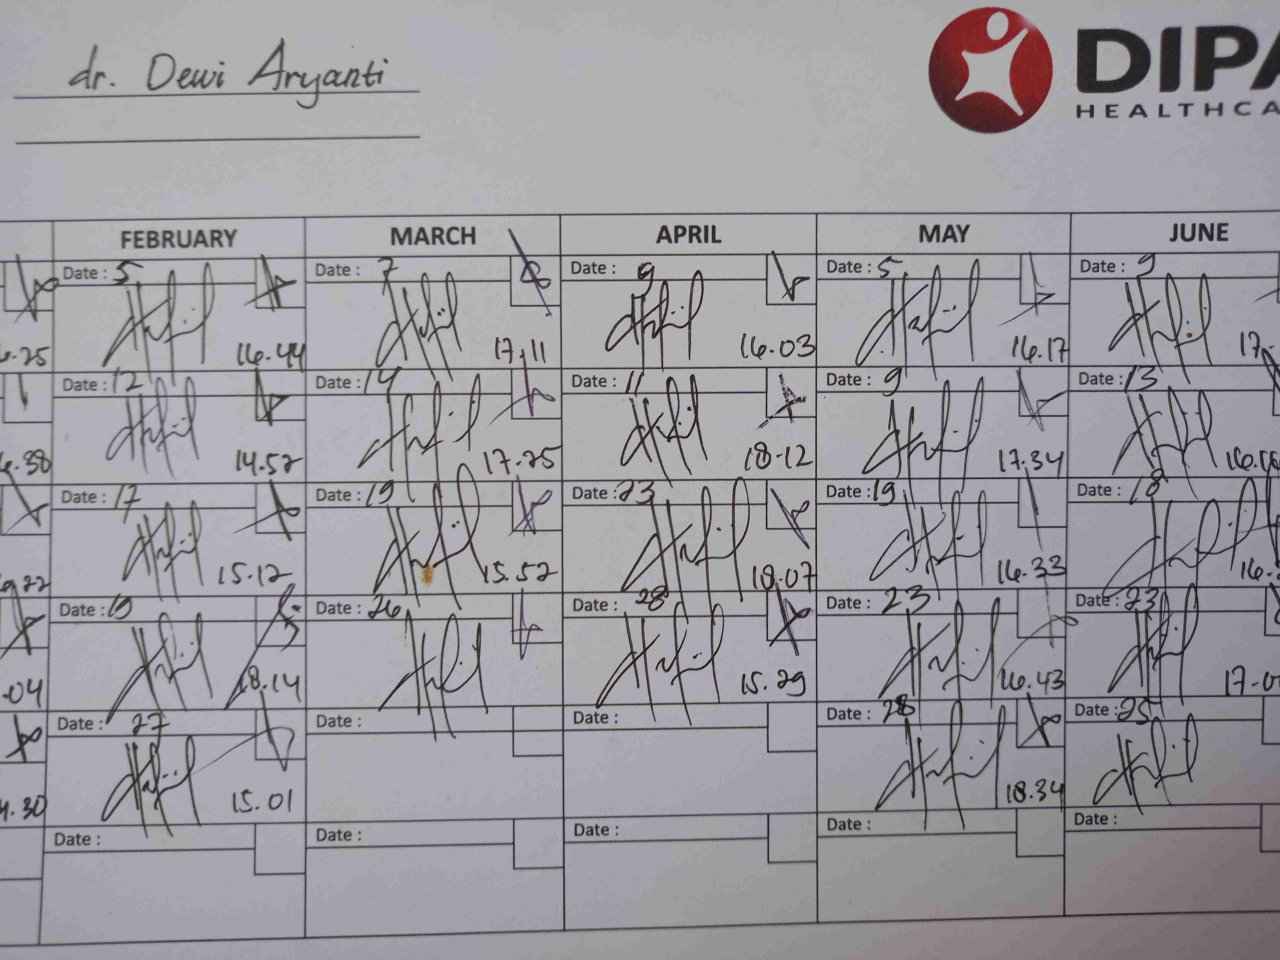 dr. Dewi Aryanti
DIPA
HEALTHCA
FEBRUARY MARCH APRIL MAY JUNE
Date : 5 Date : 7 Date : 9 Date : 5 Date : 9
.25 16.44 17.11 16.03 16.17 17.
Date : 12 Date : 14 Date : 11 Date : 9 Date : 13
.38 14.52 17.25 18.12 17.34 16.
Date : 17 Date : 19 Date : 23 Date : 19 Date : 18
.22 15.12 15.52 18.07 16.33 16.
Date : 19 Date : 26 Date : 28 Date : 23 Date : 23
.04 18.14 15.29 16.43 17.0
Date : 27 Date : Date : Date : 28 Date : 25
.30 15.01 18.34
Date : Date : Date : Date : Date :